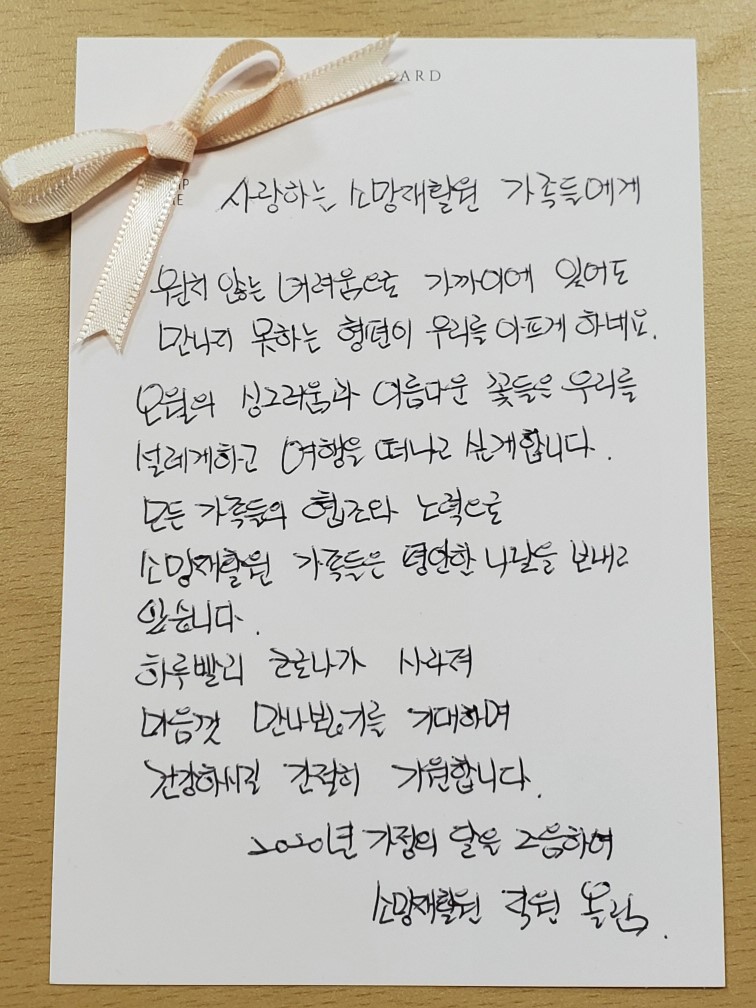 ARD
사랑하는 소망재활원 가족들에게
원치 않는 어려움으로 가까이에 있어도
만나지 못하는 형편이 우리를 아프게 하네요.
오월의 싱그러움과 아름다운 꽃들은 우리를
설레게하고 여행을 떠나고 싶게합니다.
모든 가족들의 협조와 노력으로
소망재활원 가족들은 평안한 나날을 보내고
있습니다.
하루빨리 코로나가 사라져
마음껏 만나뵙기를 기대하며
건강하시길 간절히 기원합니다.
2020년 가정의 달을 즈음하여
소망재활원 직원 올림.